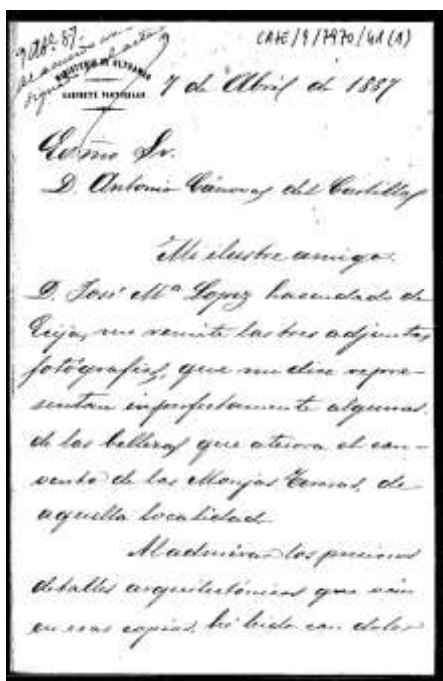 CAIE/9/7970/41(1)
9 Abl. 87.
MINISTERIO DE ULTRAMAR
GABINETE PARTICULAR
7 de Abril de 1887
Exmo Sr.
D. Antonio Cánovas del Castillo
Mi ilustre amigo:
D. José Mª Lopez hacendado de
Ecija, me remite las tres adjuntas
fotografias, que me dice repre-
sentan imperfectamente algunas
de las bellezas que atesora el con-
vento de las Monjas Teresas, de
aquella localidad.
Al admirar los preciosos
detalles arquitectónicos que ván
en esas copias, hé leido con dolor